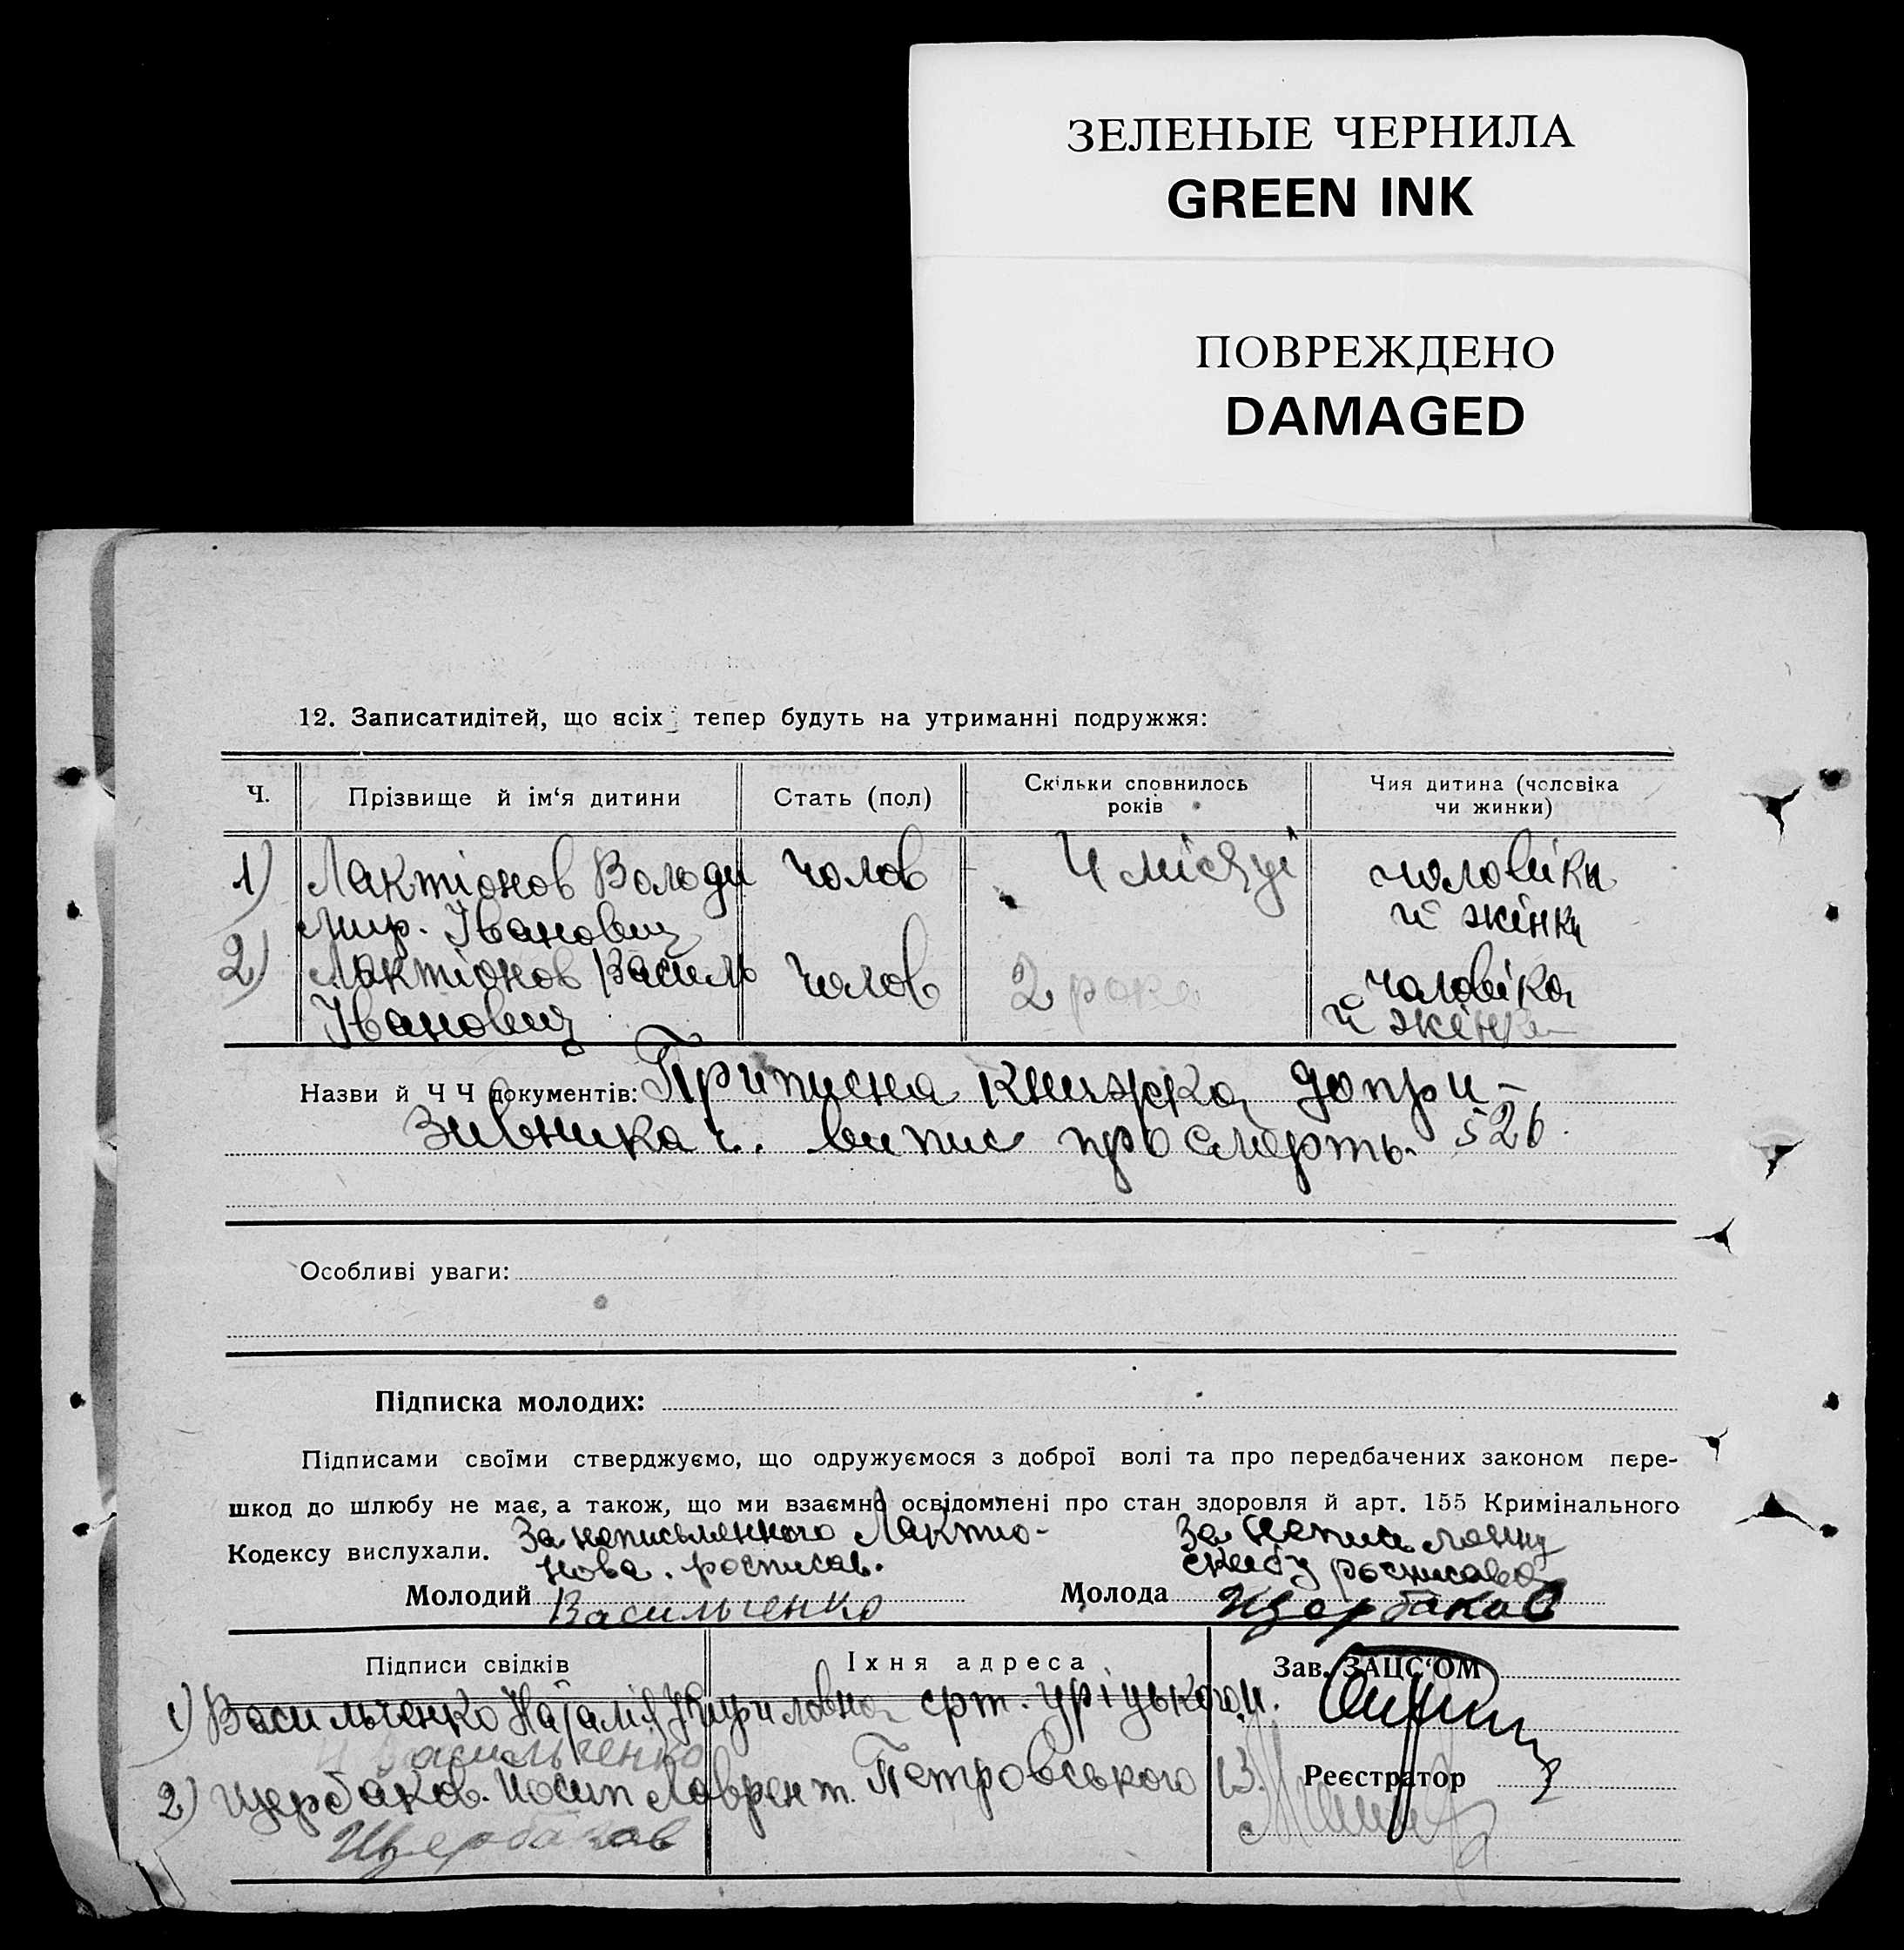 ЗЕЛЕНЫЕ ЧЕРНИЛА
GREEN INK
ПОВРЕЖДЕНО
DAMAGED
12. Записатидітей, що всіх тепер будуть на утриманні подружжя:
Ч.
Прізвище й ім'я дитини
Стать (пол)
Скільки сповнилось
років
Чия дитина (чоловіка
чи жинки)
1) Лактіонов Володи чолов 4 місяці чоловіка
мир. Іванович й жінки
2) Лактіонов Василь чолов 2 рока чоловіка
Іванович й жінки
Назви й Ч Ч документів: Приписна книжка допри-
зивника ч. випис про смерть. 526.
Особливі уваги:
Підписка молодих:
Підписами своїми стверджуємо, що одружуємося з доброї волі та про передбачених законом пере-
шкод до шлюбу не має, а також, що ми взаємно освідомлені про стан здоровля й арт. 155 Кримінального
Кодексу вислухали.
За неписьменного Лактио-
нова. росписав.
Молодий Васильченко
За
росписався
Молода Щербаков
Підписи свідків
Їхня адреса
Зав. ЗАЦС'ОМ
1) Васильченко Наталія Кириловна арт. Уріцького
Васильченко
2) Щербаков. Йосип Лаврент. Петровського 13.
Щербаков
Реєстратор